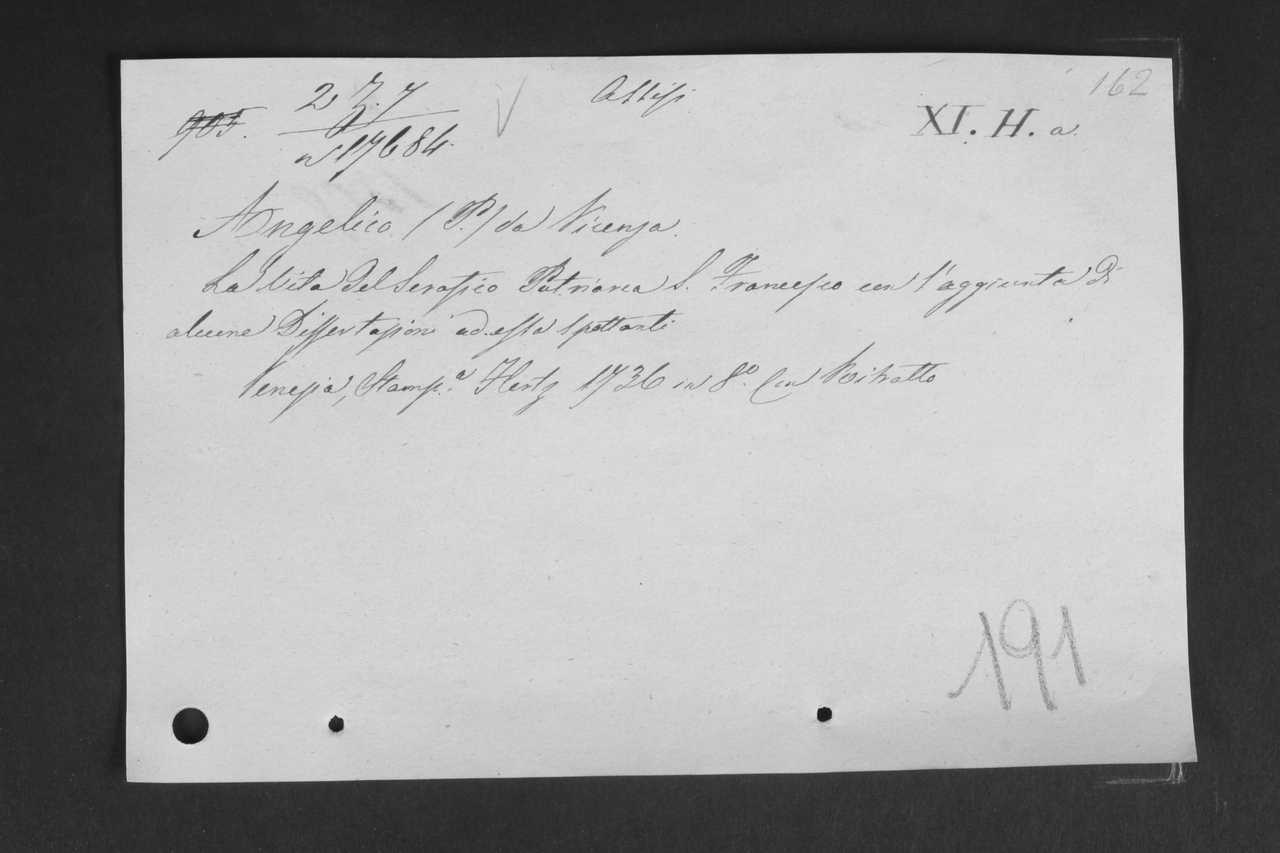 162
Assisi
XI. H. a.
905.
2 Z. 7
n 17684.
Angelico (P.) da Vicenza.
La Vita del Serafico Patriarca S. Francesco con l'aggiunta di
alcune Dissertazioni ad essa spettanti
Venezia, Stamp.a Hertz 1736 in 8.o Con Ritratto
191